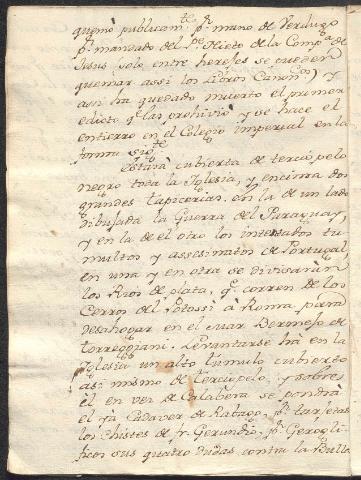 quemò publicam.te p.r mano de Verdugo
p.r mandado del P.e Nieto de la Comp.a de
Jesus solo entre hereses se pueden
quemar assi los Libros Canon.cos) y
asi ha quedado muerto el primer
edicto q.e las prohiviò y se hace el
entierro en el Colegio imperial en la
forma sig.te
Estarà cubierta de terciopelo
negro toda la Iglesia, y encima dos
grandes tapicerias, en la de un lado
dibujada la Guerra del Paraguay,
y en la de el otro los intentados tu
multos y assesinatos de Portugal,
en una y en otra se divisaràn
los Rios de plata, q.e corren de los
Cerros del Potossi à Roma para
desahogar en el mar Bermejo de
Torreggiani. Levantarse hà en la
Iglesia un alto tumulo cubierto
asi mismo de terciopelo, y sobre
èl en vez de Calabera se pondrà
el Cadaver de Rabago, p.r tarjetas
los chistes de fr. Gerundio, p.r Gerogli-
ficos sus quatro dudas contra la Bulla